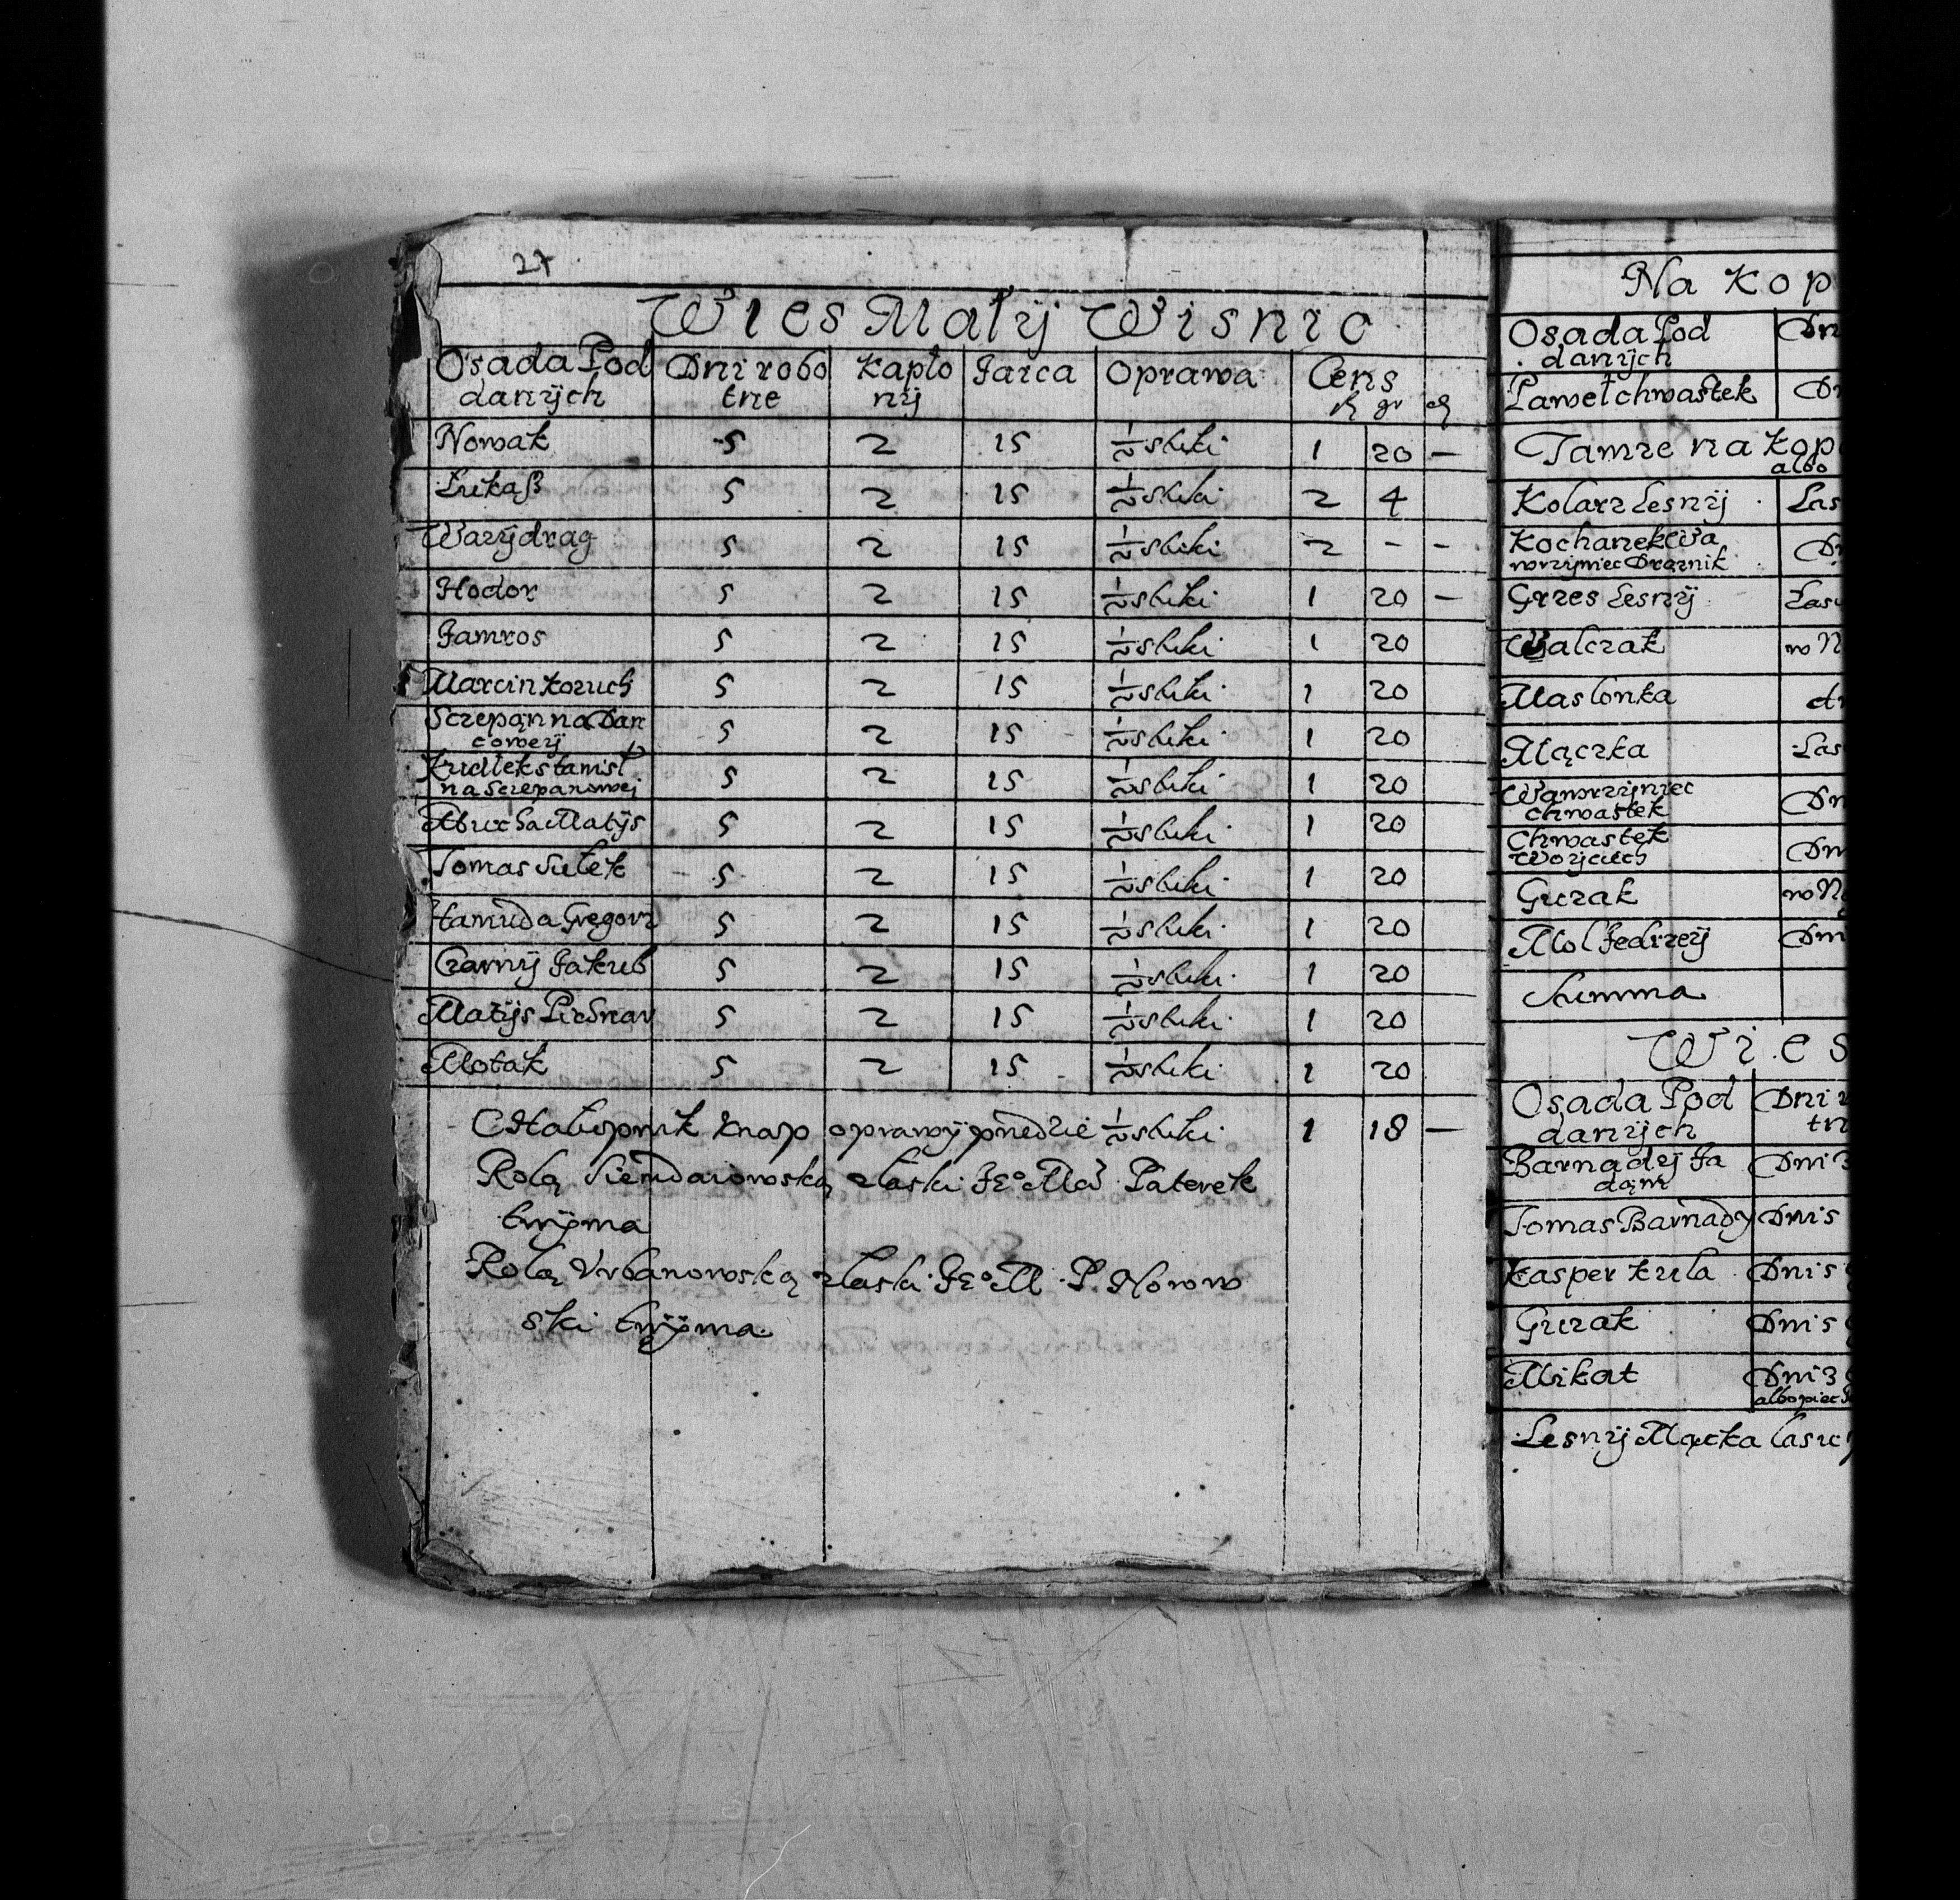 27
Wies Małÿ Wisnic
Osada Pod danÿch Dni robo tne Kapło nÿ Jaica Oprawa Cens fl gr d
Nowak 5 2 15 ½ sztuki 1 20 –
Łukaß 5 2 15 ½ sztuki 2 4
Wazÿdrag 5 2 15 ½ sztuki 2 – –
Hodor 5 2 15 ½ sztuki 1 20 –
Jamros 5 2 15 ½ sztuki 1 20
Marcin Kozuch 5 2 15 ½ sztuki 1 20
Sczepąn na Dan cowej 5 2 15 ½ sztuki 1 20
Kudlek stanisł na Sczepanowej 5 2 15 ½ sztuki 1 20
Matÿs 5 2 15 ½ sztuki 1 20
Tomas Sułek 5 2 15 ½ sztuki 1 20
Hamuda Gregorz 5 2 15 ½ sztuki 1 20
Czarnÿ Jakub 5 2 15 ½ sztuki 1 20
Matÿs 5 2 15 ½ sztuki 1 20
Motak 5 2 15 ½ sztuki 1 20
Chałupnik Knap oprawÿ przedzie ½ sztuki 1 18 –
Rolą złaski Paterek
trzÿma
Rolą Vrbanowską złaski P. Norow
ski trzÿma
Na Kop
Osada Pod danÿch Dn
Paweł chwastek Dn
Tamze na Kop
albo
Kolarz Lesnÿ Las
Kochanek Wa wrzÿniec Drąznik D
Grzes Lesnÿ Las
Walczak w N
Maslonka d
Mączka Las
Wawrzÿniec chwastek Dn
Chwastek Woÿciech Dn
Guzak w N
Mol Jedrzeÿ Dni
Summa
Wies
Osada Pod danÿch Dni r tn
Barnadÿ Ja dąm Dni 3
Tomas Barnadÿ Dni 5
Kasper Kula Dni 5
Guzak Dni 5
Mikat Dni 3
albo piec
Lesnÿ Mącka